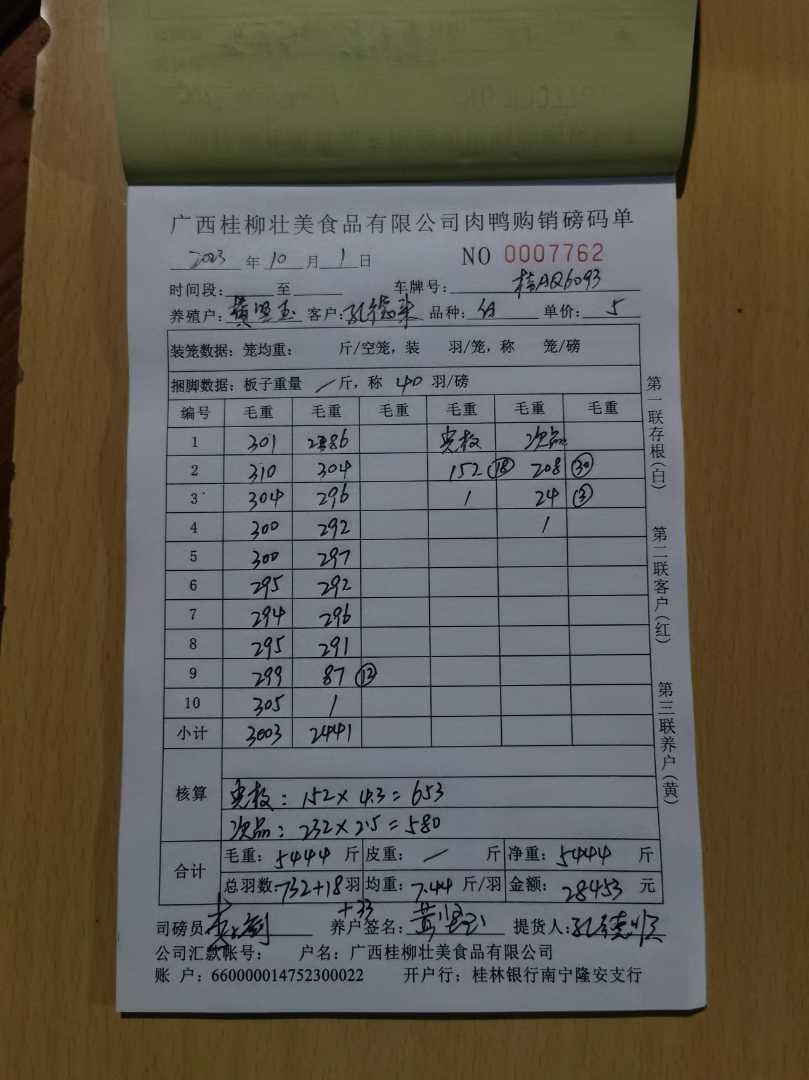 广西桂柳壮美食品有限公司肉鸭购销磅码单
2023 年 10 月 1 日 NO 0007762
时间段: 至 车牌号: 桂AQ6093
养殖户: 黄坚玉 客户: 品种: 单价: 5
装笼数据: 笼均重: 斤/空笼, 装 羽/笼, 称 笼/磅
捆脚数据: 板子重量 / 斤, 称 40 羽/磅
编号 毛重 毛重 毛重 毛重 毛重 毛重
1 301 286 次品
2 310 304 152 ⑱ 208 ㉚
3 304 296 / 24 ③
4 300 292 /
5 300 297
6 295 292
7 294 296
8 295 291
9 299 87 ⑫
10 305 /
小计 3003 2441
核算
: 152×4.3=653
次品: 232×2.5=580
合计
毛重: 5444 斤 皮重: / 斤 净重: 5444 斤
总羽数 732+18 羽 均重: 7.44 斤/羽 金额: 28453 元
+33
司磅员 养户签名: 黄坚玉 提货人: 孔德顺
公司汇款帐号: 户名: 广西桂柳壮美食品有限公司
账 户: 660000014752300022 开户行: 桂林银行南宁隆安支行
第一联存根(白)
第二联客户(红)
第三联养户(黄)